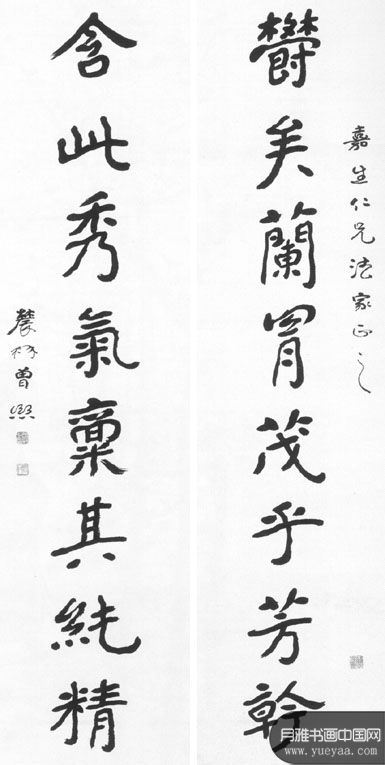 嘉生仁兄法家正之
鬱矣蘭胃茂乎芳幹
含此秀氣稟其純精
農髯曾熙
月雅书画中国网
www.yueyaa.com